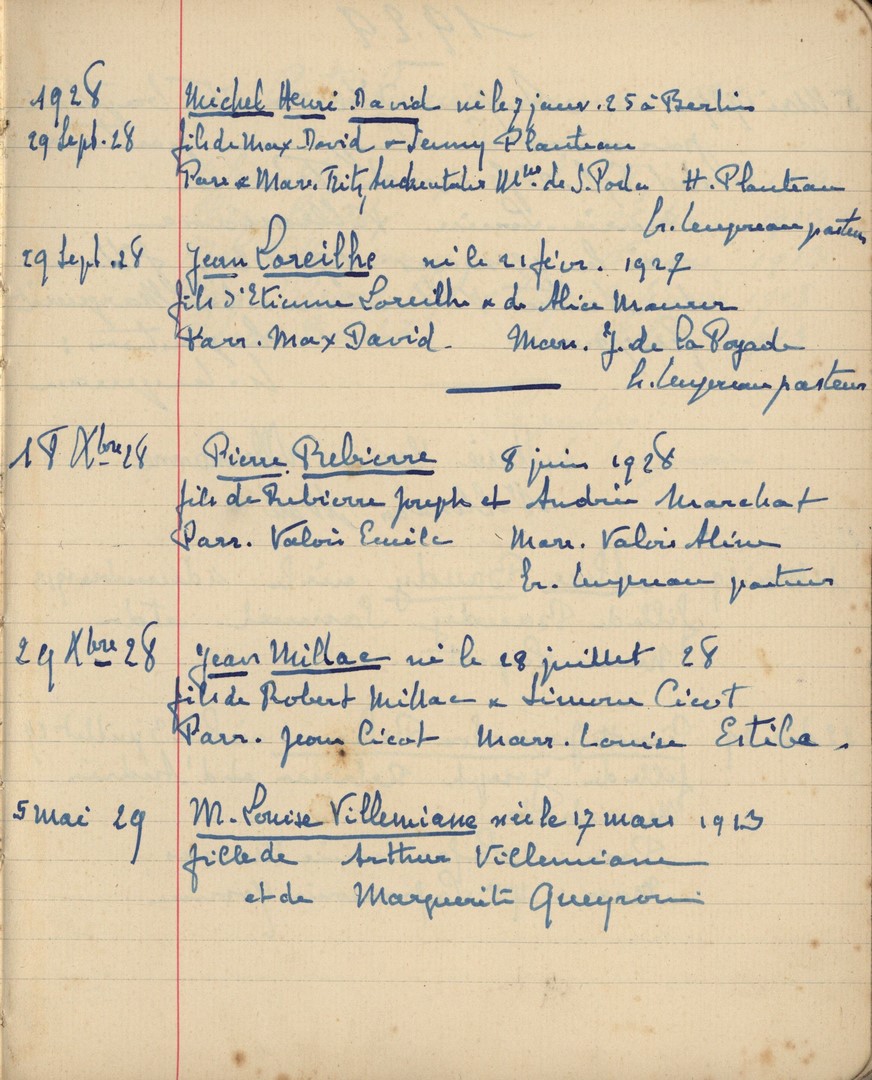 1928 Michel Henri David né le 7 janv. 25 à Berlin
29 Sept. 28 fils de Max David & Jenny Planteau
Parr & Marr. Fritz Mme de S. Poda H. Planteau
pasteur
29 Sept. 28 Jean Loreilhe né le 21 févr. 1927
fils d'Etienne Loreilhe & de Alice Maurer
Parr. Max David - Marr. J. de la Poyade
pasteur
18 Xbre 28 Pierre Rebierre 8 juin 1928
fils de Rebierre Joseph et Andrée Marchat
Parr. Valois Emile Marr. Valois Aline
pasteur
29 Xbre 28 Jean Millac né le 28 juillet 28
fils de Robert Millac & Simone Cicot
Parr. Jean Cicot Marr. Louise Estibe.
5 mai 29 M. Louise Villemiane née le 17 mars 1913
fille de Arthur Villemiane
et de Marguerite Queyron